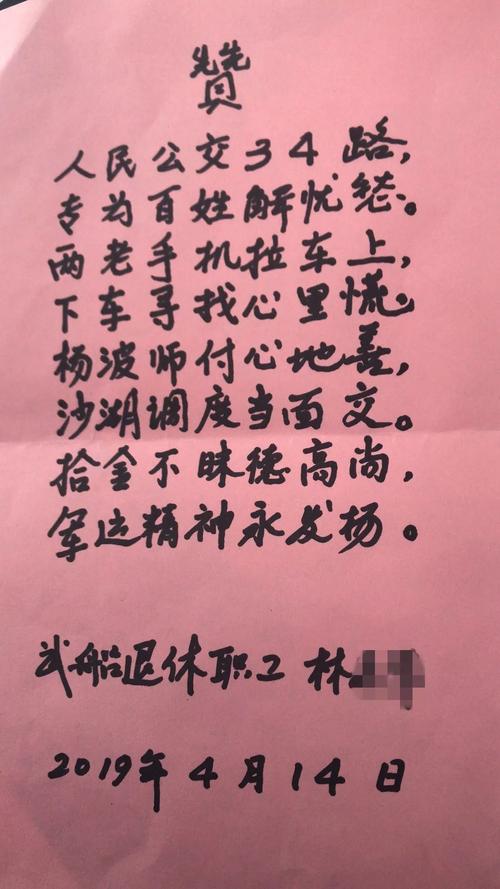 赞
人民公交34路，
专为百姓解忧愁。
两老手机拉车上，
下车寻找心里慌。
杨波师付心地善，
沙湖调度当面交。
拾金不昧德高尚，
军运精神永发杨。
武船退休职工 林
2019年4月14日